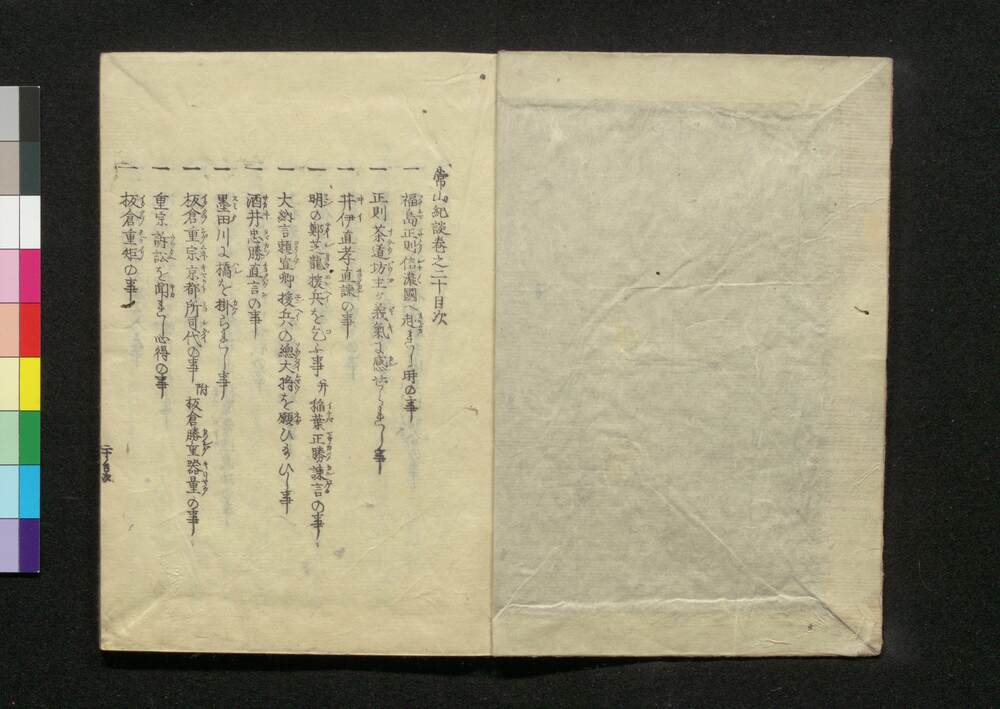 常山紀談巻之二十目次
一 福島正則信濃國へ赴れし時の事
一 正則茶道坊主が義氣に感ぜられし事
一 井伊直孝直諫の事
一 明の鄭芝龍援兵を乞ふ事 并 稲葉正勝諫言の事
一 大納言頼宣卿援兵の總大将を願ひ給ひし事
一 酒井忠勝直言の事
一 墨田川に橋を掛られし事
一 板倉重宗京都所司代の事 附 板倉勝重器量の事
一 重宗訴訟を聞れし心得の事
一 板倉重矩の事
二十ノ目次